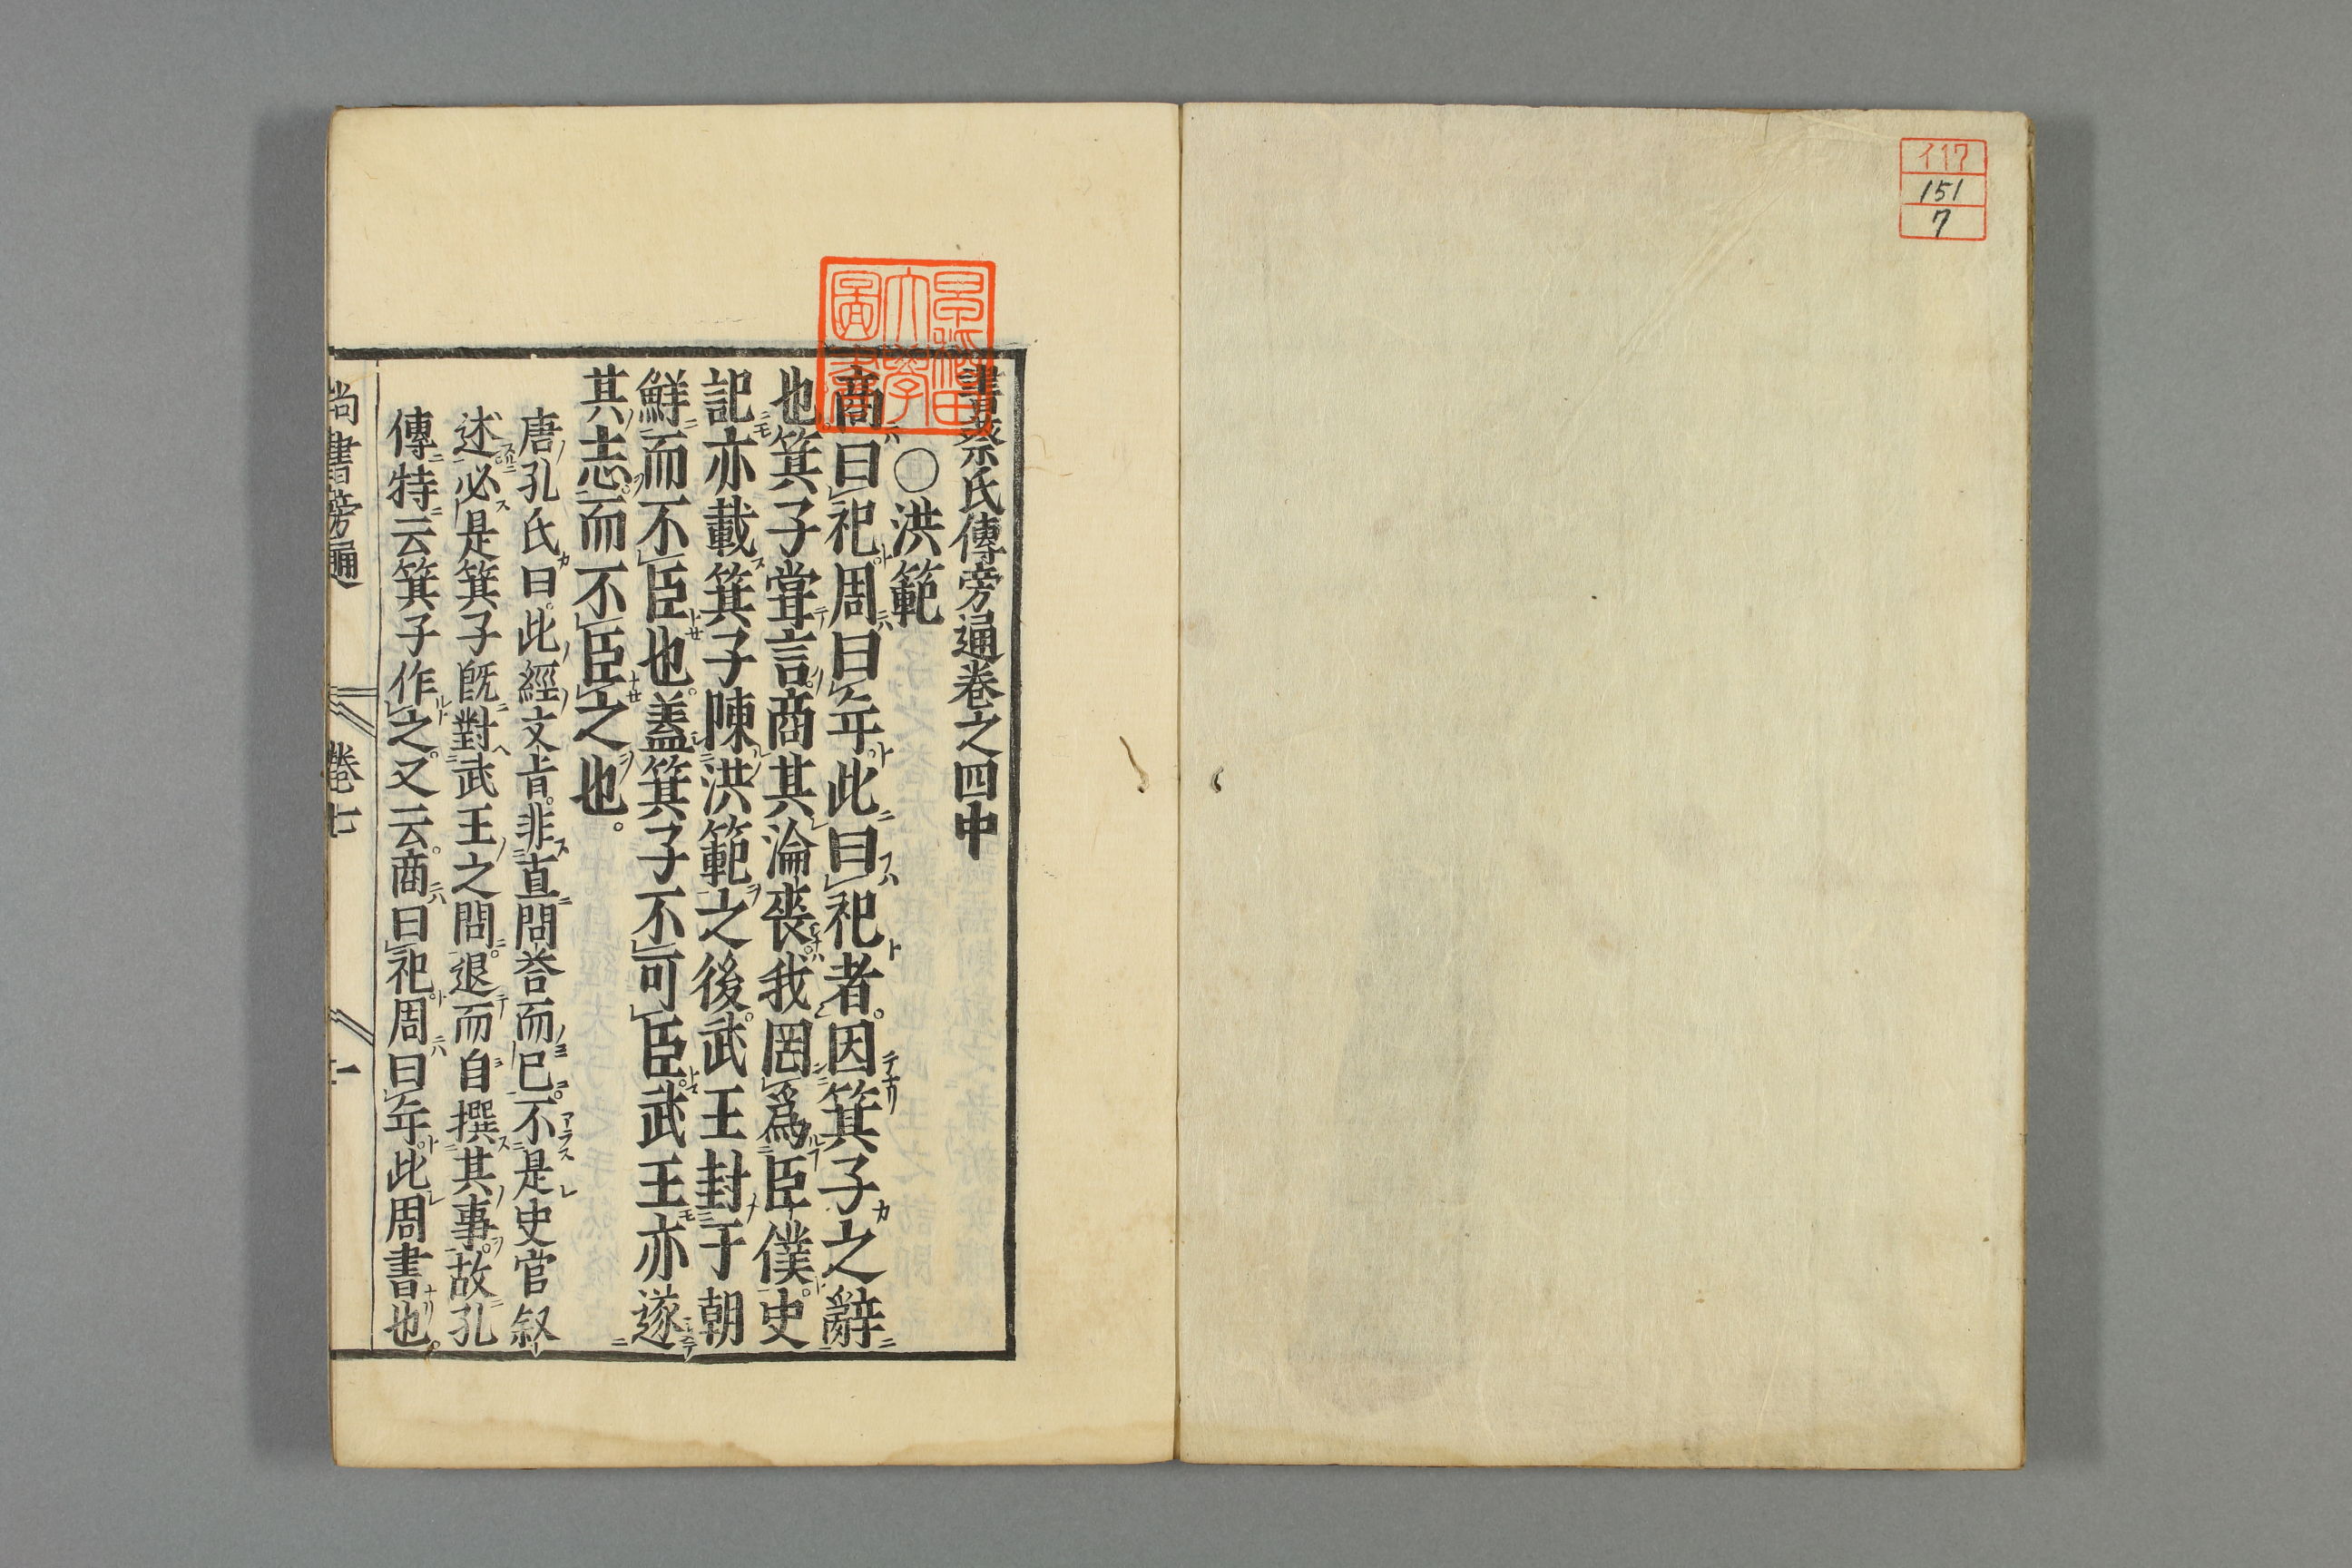 イ17
151
7
早稲田
大學
圖書
書蔡氏傳旁通卷之四中
○洪範
商曰祀周曰年此曰祀者因箕子之辭
也箕子嘗言商其淪喪我罔爲臣僕史
記亦載箕子陳洪範之後武王封于朝
鮮而不臣也蓋箕子不可臣武王亦遂
其志而不臣之也
唐孔氏曰此經文旨非直問荅而已不是史官叙
述必是箕子旣對武王之問退而自撰其事故孔
傳特云箕子作之又云商曰祀周曰年此周書也
尚書旁通 卷七 一